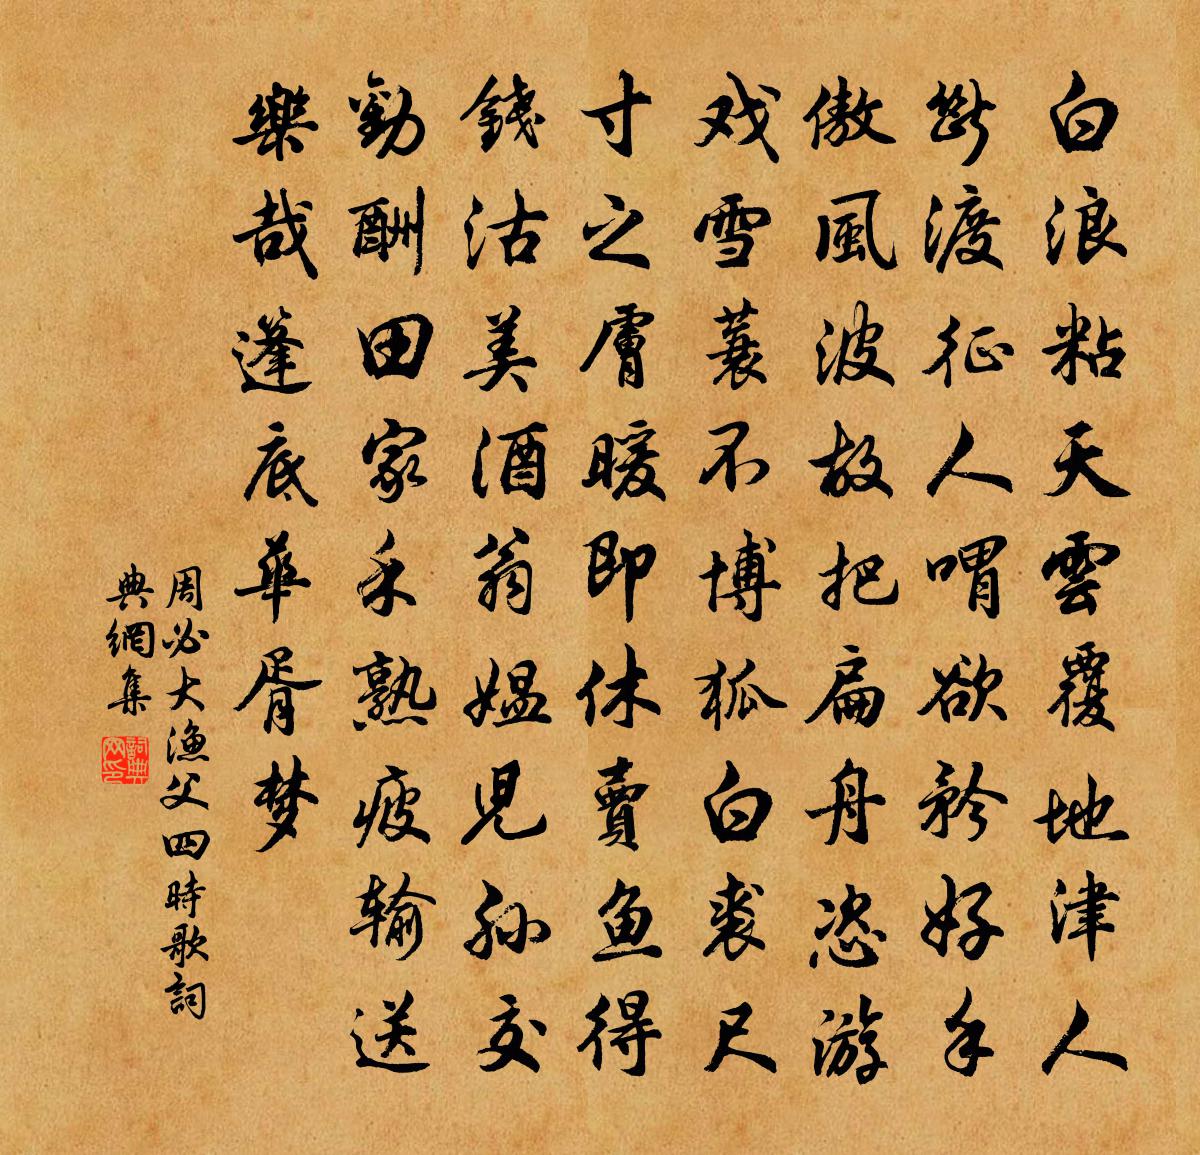 白浪粘天雲覆地津人
斷渡征人喟欲矜好手
傲風波故把扁舟恣游
戏雪蓑不博狐白裘尺
寸之膚暖即休賣鱼得
錢沽美酒翁媪児孙交
勸酬田家禾熟疲输送
樂哉蓬底華胥梦
周必大漁父四時歌詞
典網集
詞典网印